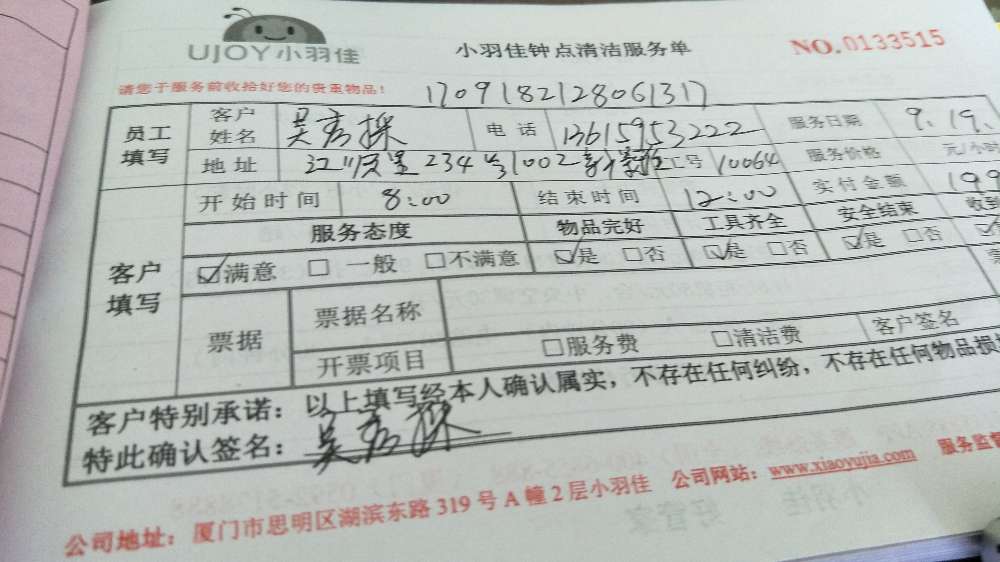 UJOY小羽佳
小羽佳钟点清洁服务单
NO.0133515
请您于服务前收拾好您的贵重物品!
1709182128061317
员工填写 客户姓名 吴 电话 13615953222 服务日期 9.19.
地址 234号1002 工号 10064 服务价格 元/小时
客户填写 开始时间 8:00 结束时间 12:00 实付金额 199
服务态度 物品完好 工具齐全 安全结束 收到
☑满意 □一般 □不满意 ☑是 □否 ☑是 □否 ☑是 □否
票据 票据名称
开票项目 □服务费 □清洁费 客户签名
客户特别承诺:以上填写经本人确认属实,不存在任何纠纷,不存在任何物品损
特此确认签名:吴
公司地址:厦门市思明区湖滨东路 319 号 A 幢 2 层小羽佳 公司网站:www.xiaoyujia.com 服务监督